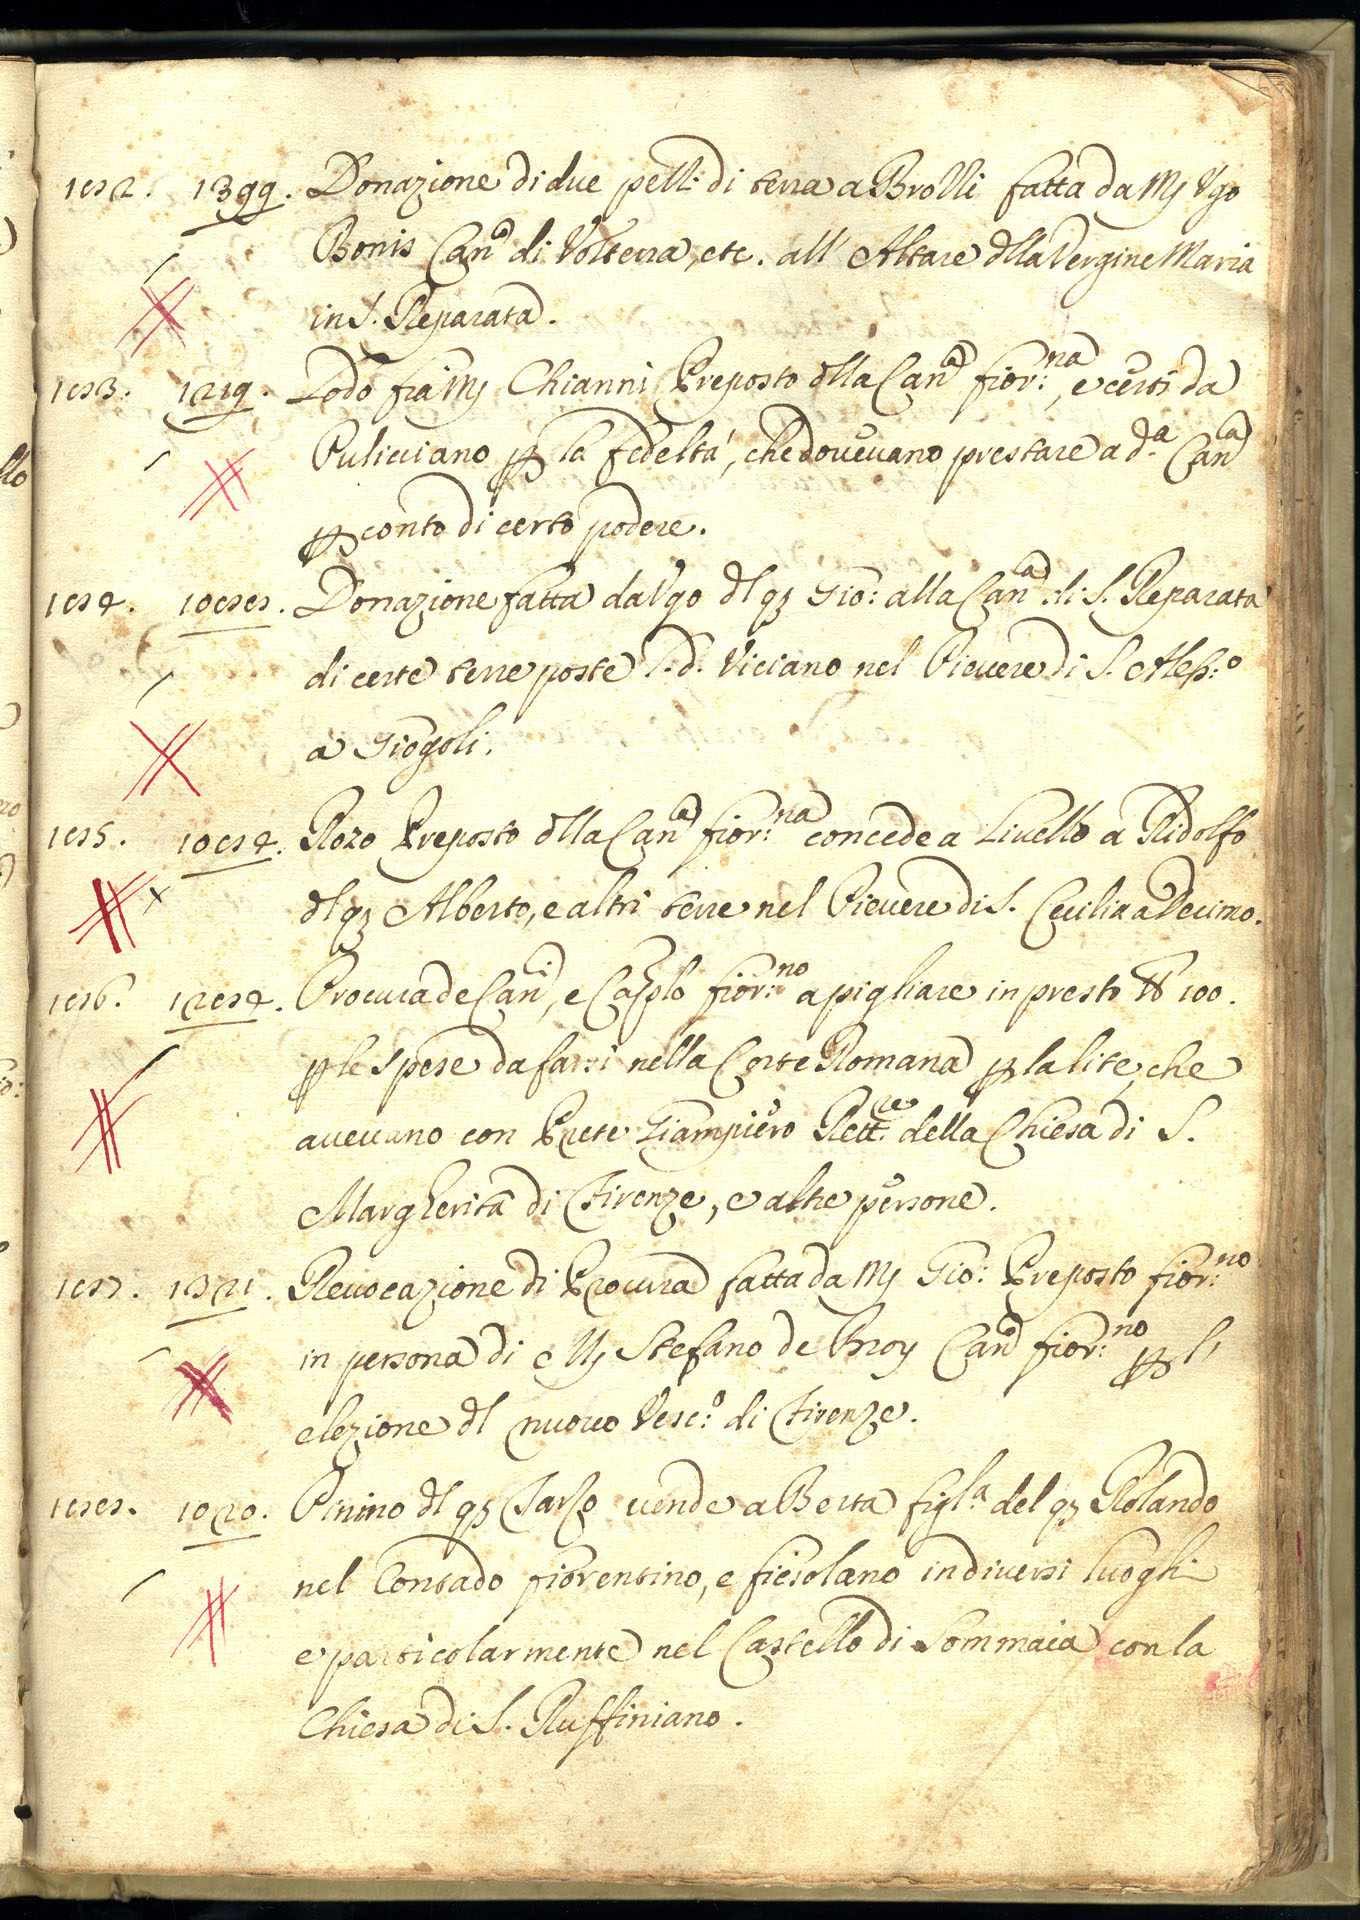 182. 1399. Donazione di due pell: di terra a Brolli fatta da Mṣ Vgo
Bonis Can.º di Volterra, etc. all' Altare dlla Vergine Maria
in S. Reparata.
183. 1219. Lodo frà Mṣ Chianni Preposto dlla Can.ª fior:na, e certi da
Puliciano ꝑ la fedeltà, che dovevano prestare a d.ª Can.ª
ꝑ conto di certo podere.
184. 1088. Donazione fatta da Vgo dl qꝫ Gio: alla Can.ª di S. Reparata
di certe terre poste l.d. Viciano nel Pievere di S. Aless:º
a Giogoli.
185. 1084. Rozo Preposto dlla Can.ª fior:na concede a Livello à Ridolfo
dl qꝫ Alberto, e altri terre nel Pievere di S. Cecilia a Decimo.
186. 1284. Procura de Can.i, e Caplo fior:no a pigliare in presto ₶ 100.
ꝑ le spese da farsi nella Corte Romana ꝑ la lite, che
avevano con Prete Giampiero Rett.re della Chiesa di S.
Margherita di Firenze, e altre persone.
187. 1321. Revocazione di Procura fatta da Mṣ Gio: Preposto fior:no
in persona di Mṣ Stefano de Broy Can.º fior:no ꝑ l'
elezione dl nuovo Vesc:º di Firenze.
188. 1020. Pinino dl qꝫ Farlo vende a Berta figl.ª del qꝫ Rolando
nel Contado fiorentino, e fiesolano in diversi luoghi
e particolarmente nel Castello di Sommaia con la
Chiesa di S. Ruffiniano.